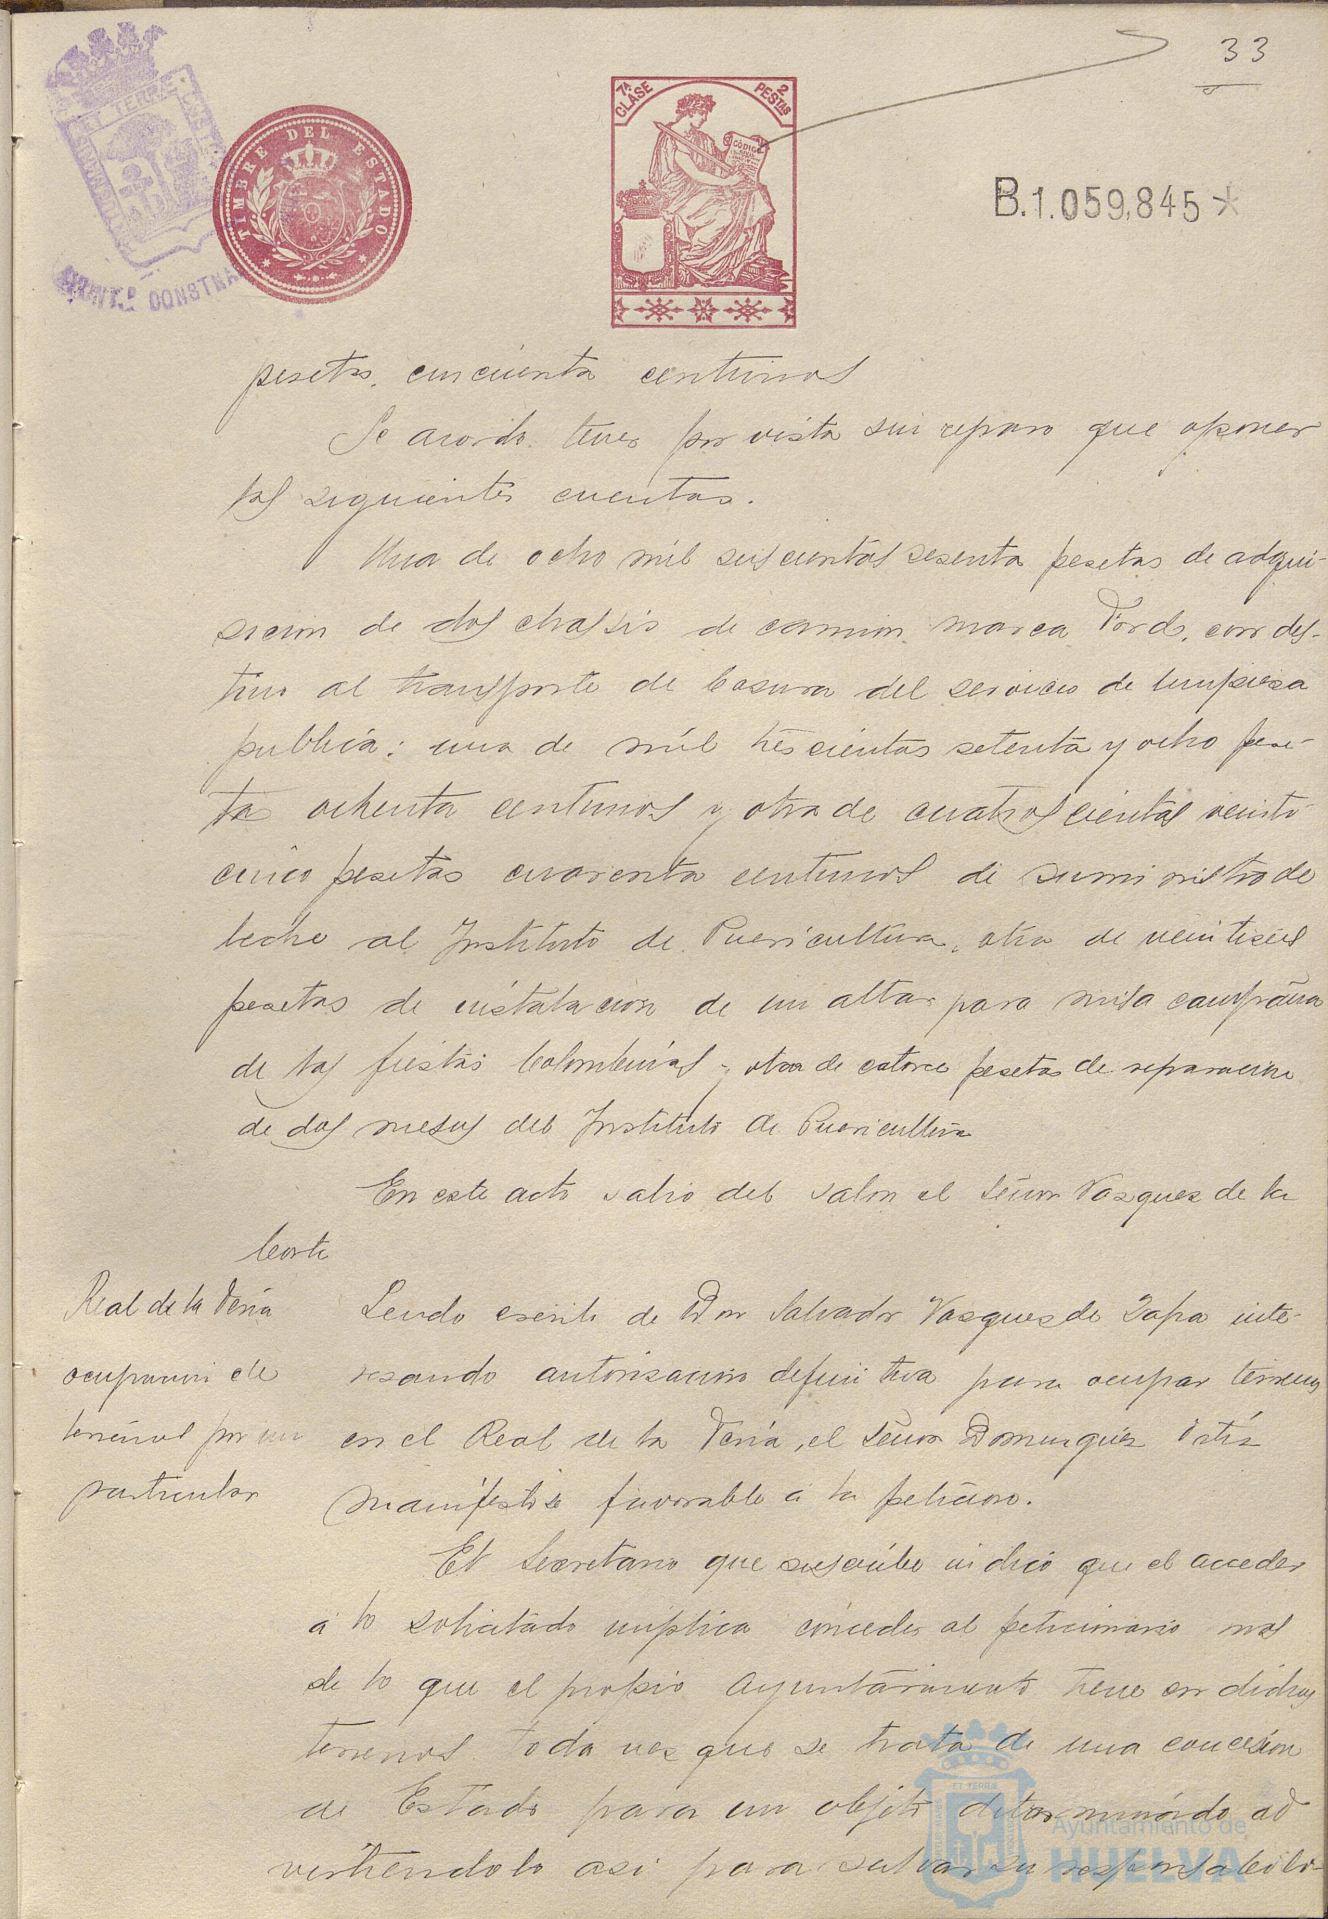 33
TIMBRE DEL ESTADO
7ª CLASE
2 PESTAS
CODIGO
B.1.059,845*
AYUNT.º CONSTNAL
pesetas, cincuenta centimos
Se acordo tener por vista sin reparo que oponer
las siguientes cuentas.
Una de ocho mil seiscientas sesenta pesetas de adqui-
sicion de dos chassis de camion marca Ford, con des-
tino al transporte de basura del servicio de limpieza
publica; una de mil trescientas setenta y ocho pese-
tas ochenta centimos y otra de cuatroscientas veinti
cinco pesetas cuarenta centimos de suministro de
leche al Instituto de Puericultura, otra de veintiseis
pesetas de instalacion de un altar para misa campaña
de las fiestas Colombinas y otra de catorce pesetas de reparacion
de dos mesas del Instituto de Puericultura
En este acto salio del salon el Señor Vazquez de la
Corte
Real de la Feria
ocupacion de
terrenos por un
particular
Leido escrito de Don Salvador Vazquez de Zapa inte-
resando autorizacion definitiva para ocupar terrenos
en el Real de la Feria, el Señor Dominguez Ortiz
manifestose favorable a la peticion.
El Secretario que suscribe indicó que el acceder
a lo solicitado implica conceder al peticionario mas
de lo que el propio Ayuntamiento tiene en dichos
terrenos toda vez que se trata de una concesion
de Estado para un objeto determinado ad
virtiendolo asi para salvar su responsabili-
Ayuntamiento de
HUELVA